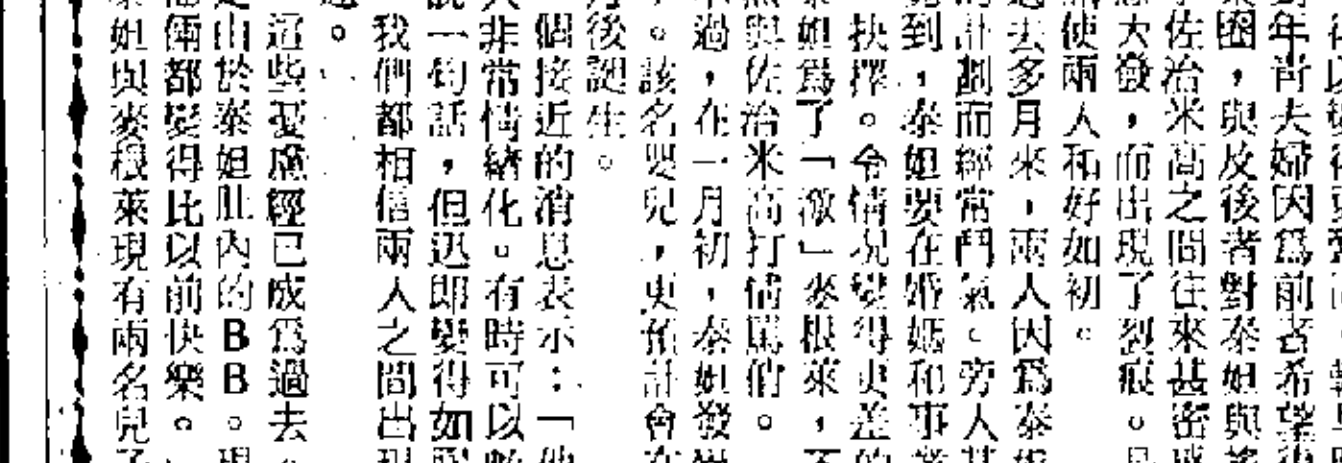 年青夫婦因爲前者希望
圈，與及後者對泰姐與
佐治米高之間往來甚密
大發，而出現了裂痕。
使兩人和好如初。
過去多月來，兩人因爲泰
計劃而經常鬥氣。旁人
到，泰姐要在婚姻和事業
抉擇。令情況變得更差的
姐爲了「激」麥根萊，不
與佐治米高打情罵俏。
過，在一月初，泰姐發
。該名嬰兒，更預計會在
後誕生。
個接近的消息表示：「他
非常情緒化。有時可以
一句話，但迅即變得如
我們都相信兩人之間出現
。
這些憂慮經已成爲過去。
由於泰姐肚內的BB。現
倆都變得比以前快樂。
姐與麥根萊現有兩名兒子